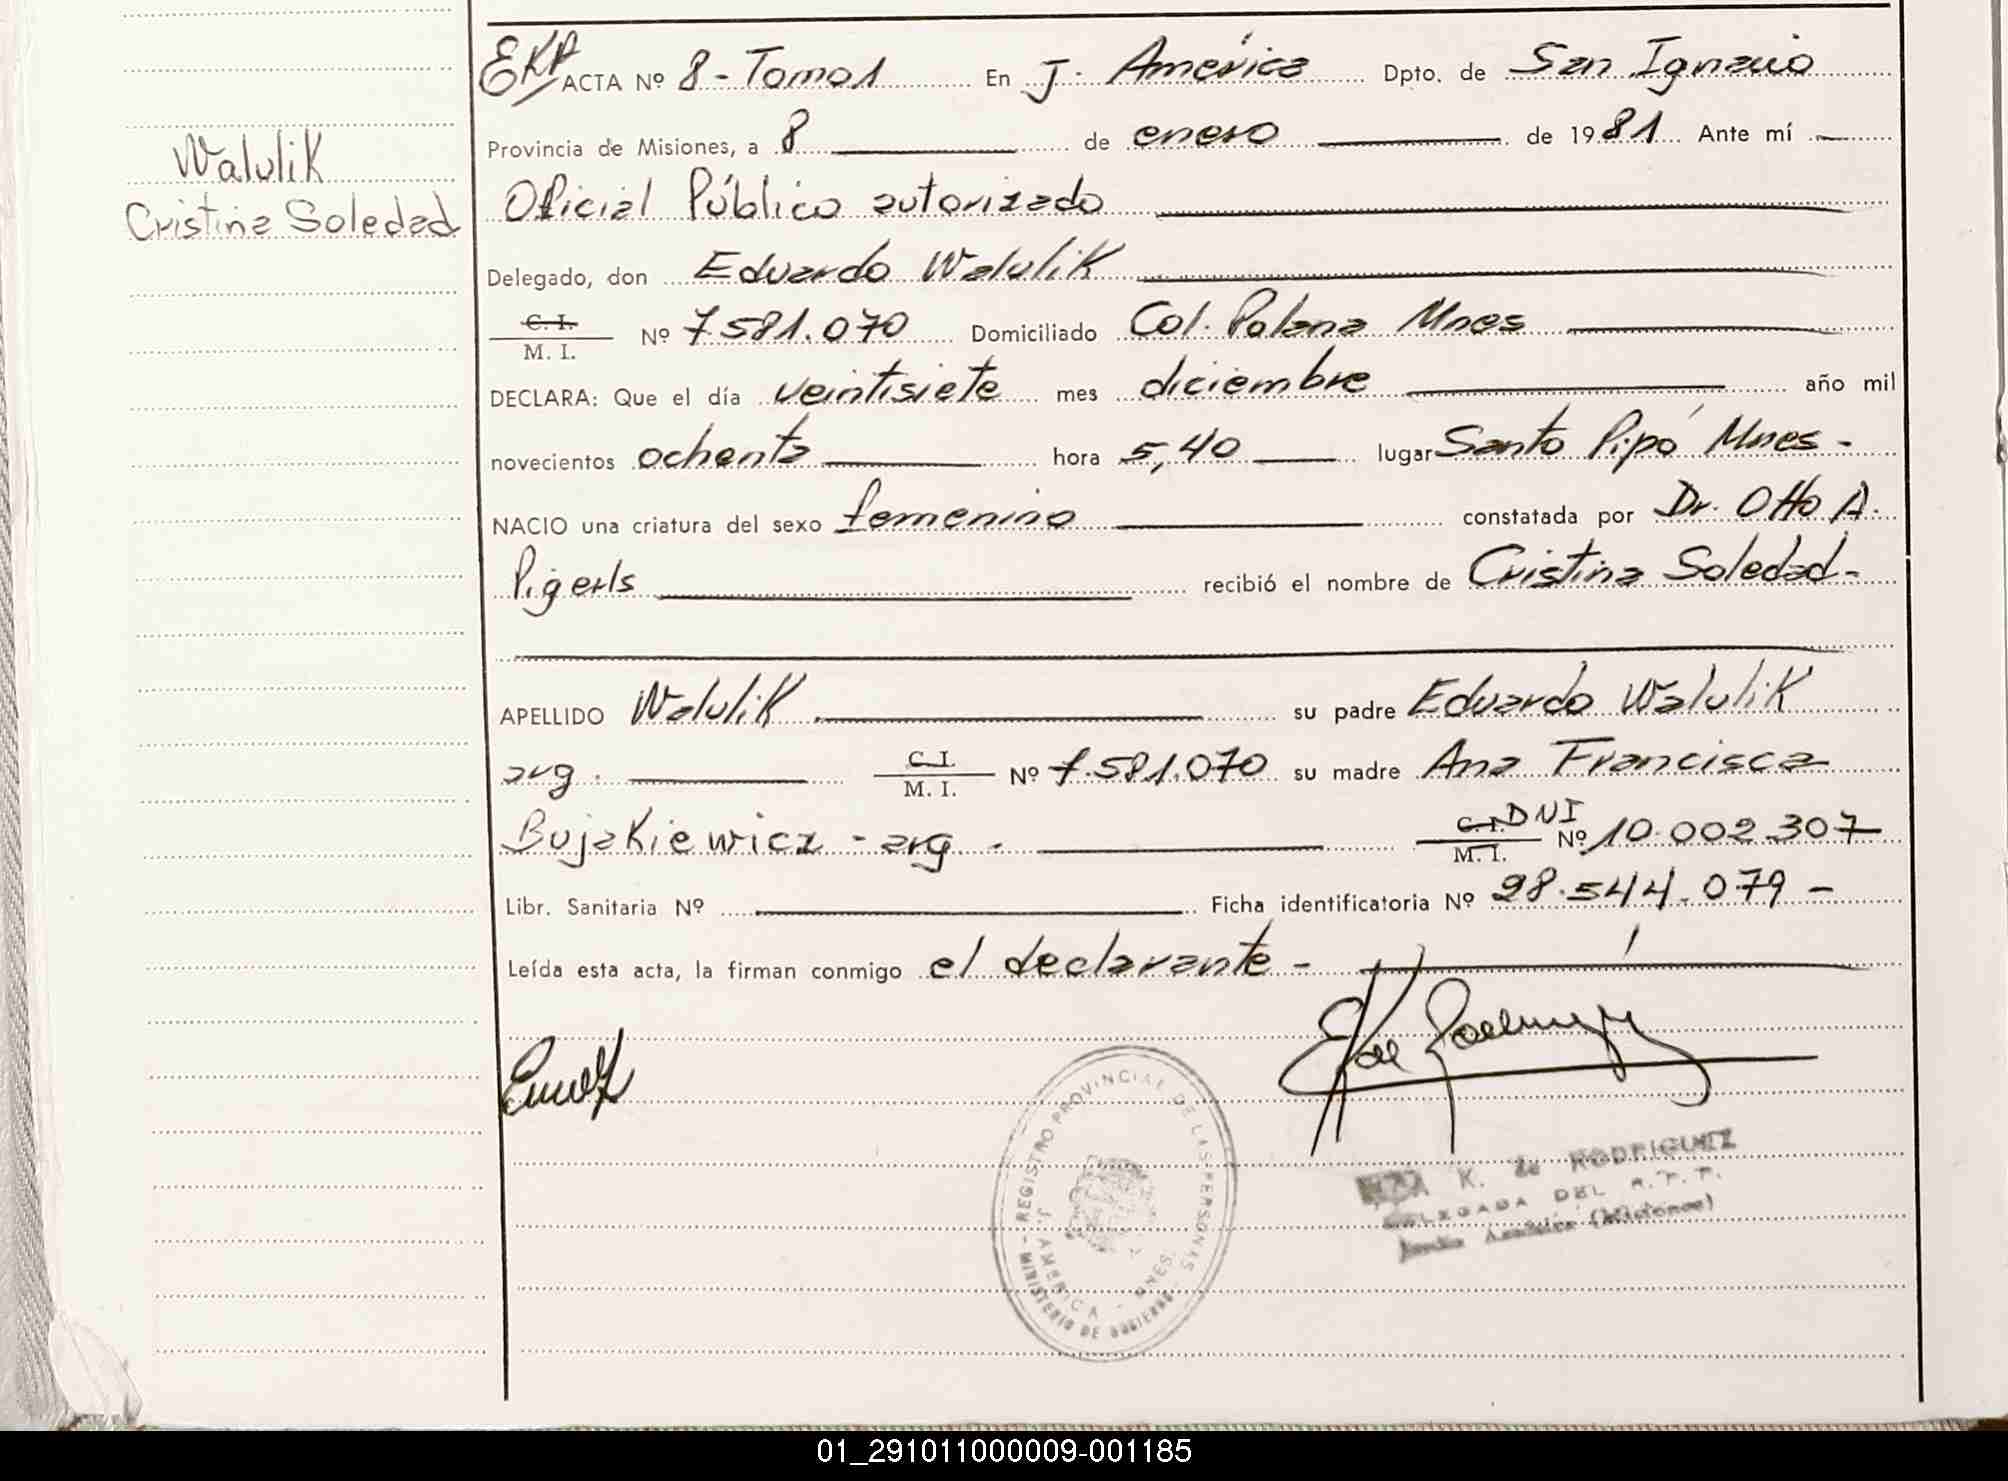 Walulik
Cristina Soledad
EKR ACTA Nº 8 - Tomo 1 En J. América Dpto. de San Ignacio
Provincia de Misiones, a 8 de enero de 1981 Ante mí
Oficial Público autorizado
Delegado, don Eduardo Walulik
C. I.
M. I. Nº 7.581.070 Domiciliado Col. Polana Mnes
DECLARA: Que el día veintisiete mes diciembre año mil
novecientos ochenta hora 5,40 lugar Santo Pipó Mnes -
NACIO una criatura del sexo femenino constatada por Dr. Otto A.
Pigerls recibió el nombre de Cristina Soledad -
APELLIDO Walulik su padre Eduardo Walulik
arg. C. I.
M. I. Nº 7.581.070 su madre Ana Francisca
Bujakiewicz - arg - C. I. DNI
M. I. Nº 10.002.307
Libr. Sanitaria Nº Ficha identificatoria Nº 28.544.079 -
Leída esta acta, la firman conmigo el declarante -
REGISTRO PROVINCIAL DE LAS PERSONAS
J. AMERICA - MNES.
MINISTERIO DE GOBIERNO
K. de RODRIGUEZ
DELEGADA DEL
(Misiones)
01_291011000009-001185